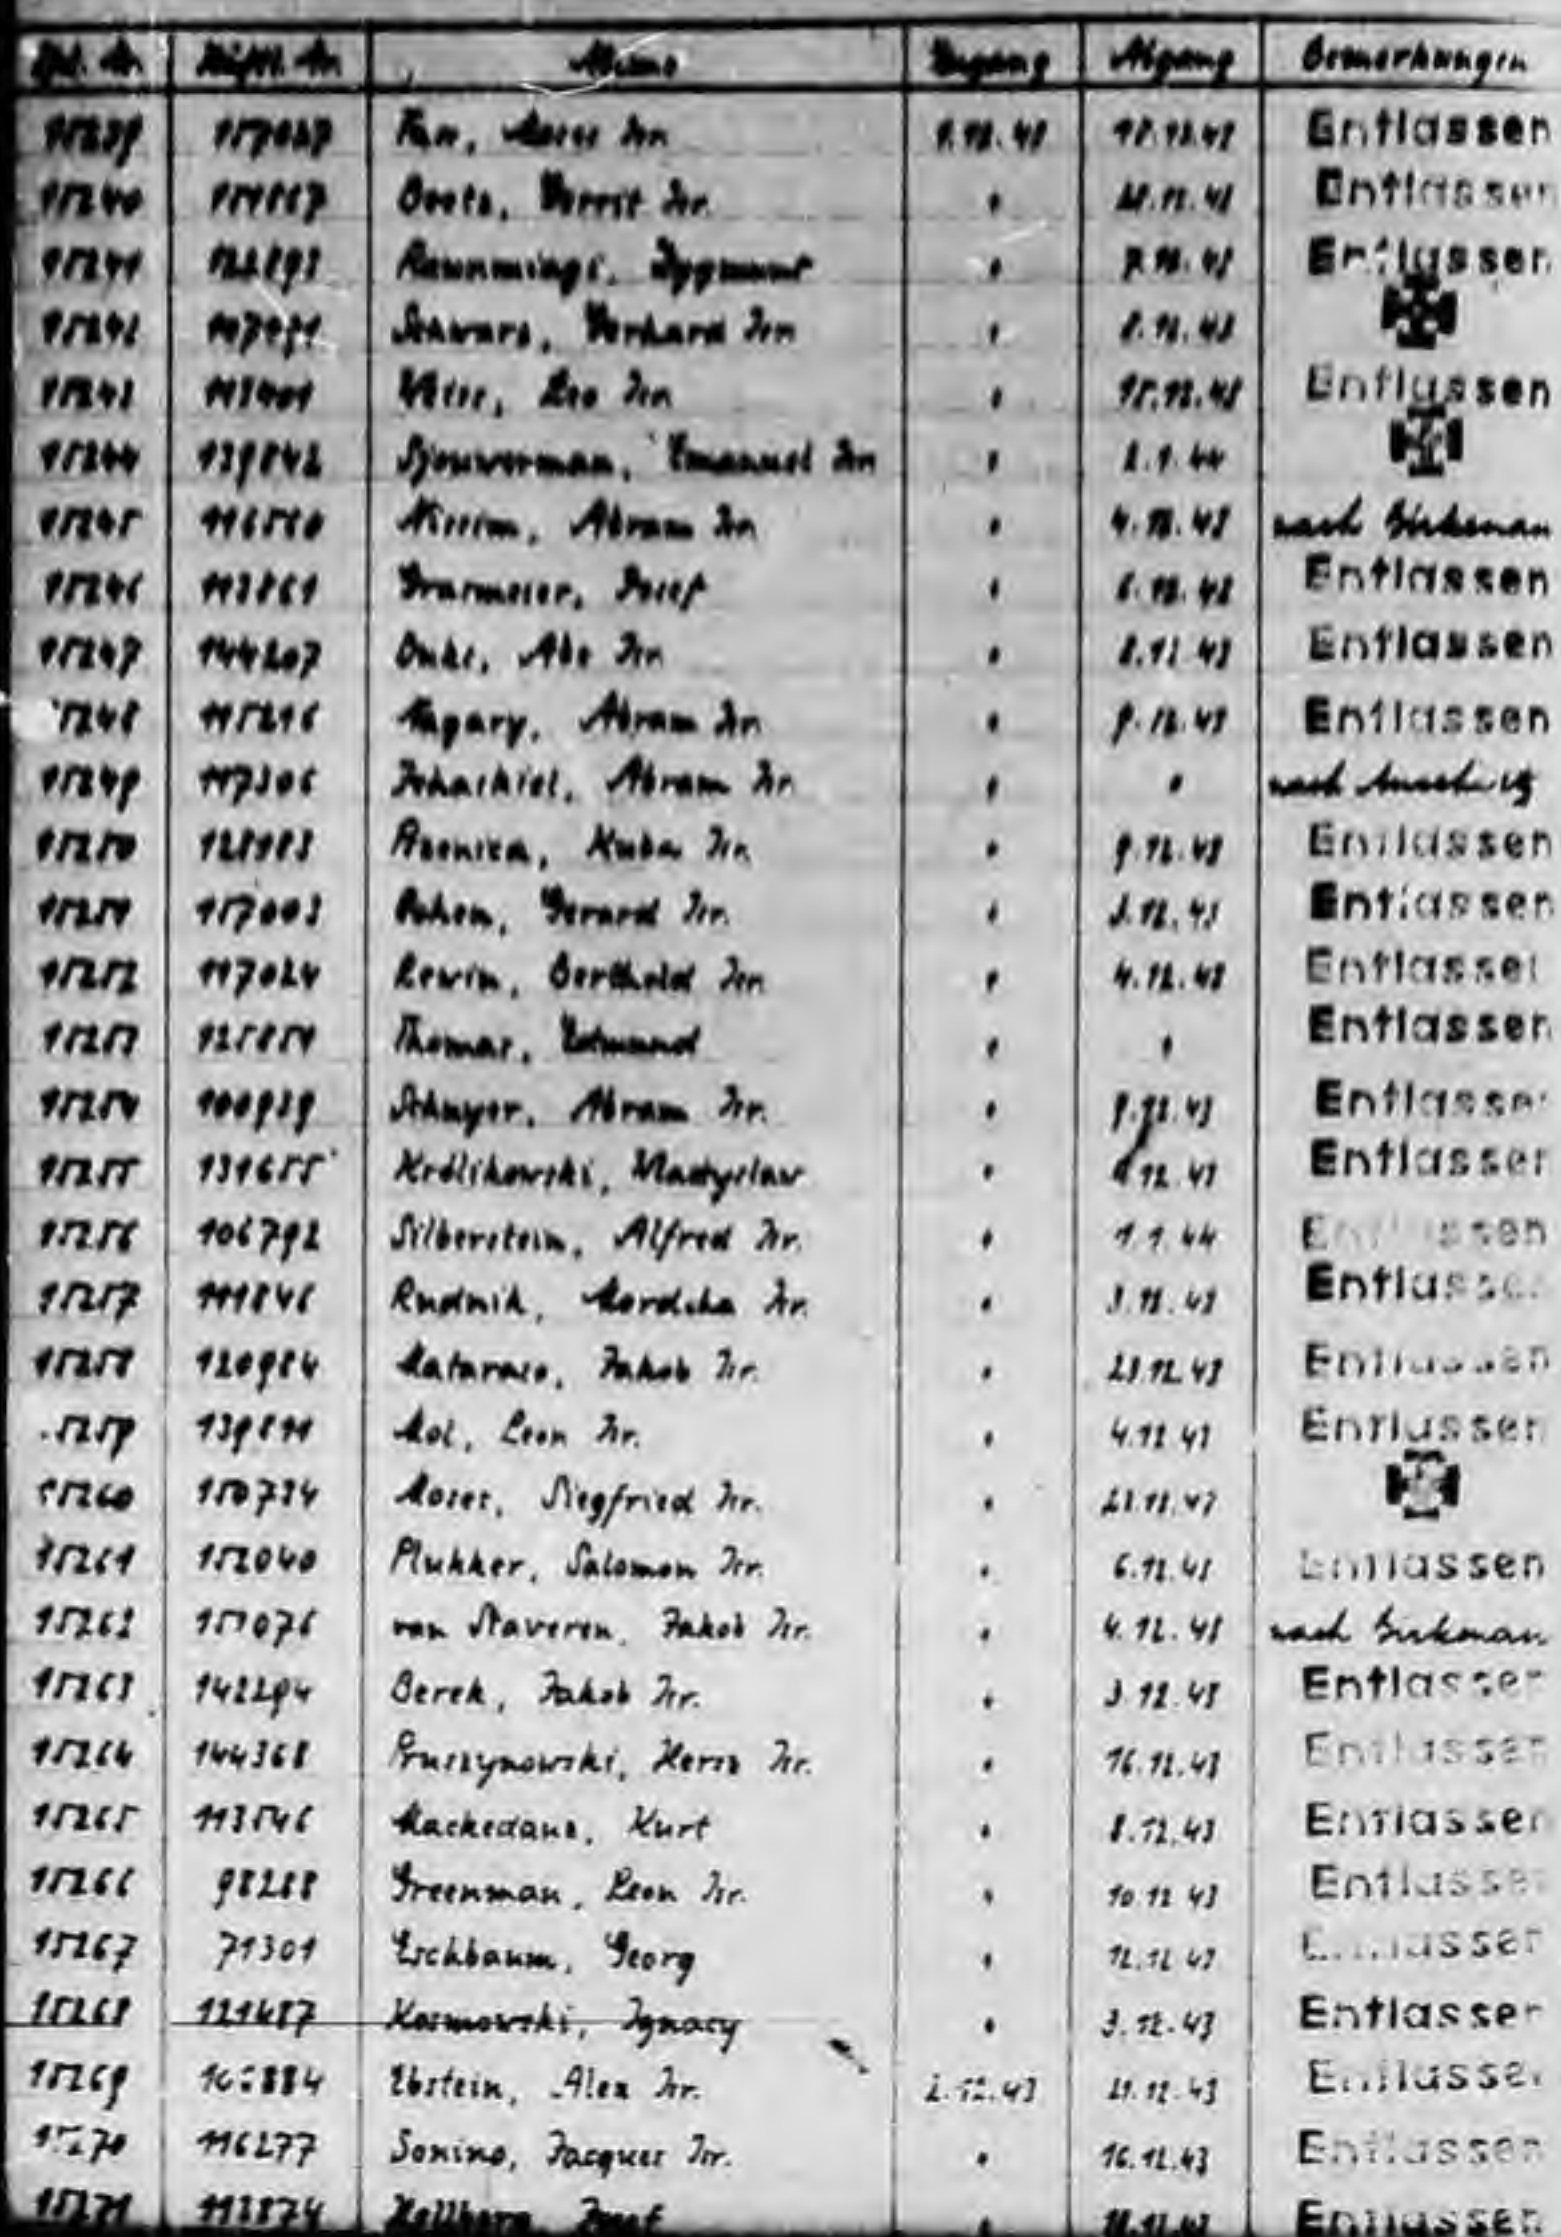 Häftl. Nr. Name Zugang Abgang Bemerkungen
15239 157027 Moses Isr. 1.12.43 Entlassen
15240 Gerrit Isr. " Entlassen
15241 Zygmunt " 7.12.43 Entlassen
15242 Schwarz, Gerhard Isr. " 8.12.43
15243 113401 Weiss, Leo Isr. " 15.12.43 Entlassen
15244 139842 Sjouwerman, Emanuel Isr. " 2.1.44
15245 116560 Nissim, Abram Isr. " 4.12.43 nach Birkenau
15246 113861 Josef " 6.12.43 Entlassen
15247 144207 Abe Isr. " 8.12.43 Entlassen
15248 115216 Abram Isr. " 9.12.43 Entlassen
15249 117306 Abram Isr. " " nach Auschwitz
15250 128983 Kuba Isr. " 9.12.43 Entlassen
15251 157003 Cohen, Gerard Isr. " 3.12.43 Entlassen
15252 117024 Lewin, Berthold Isr. " 4.12.43 Entlassen
15253 125851 Thomas, Edmund " " Entlassen
15254 100939 Schuyer, Abram Isr. " 9.12.43 Entlassen
15255 131655 Królikowski, Wladyslaw " 12.43 Entlassen
15256 106792 Silberstein, Alfred Isr. " 1.1.44 Entlassen
15257 111846 Rudnik, Mordcha Isr. " 3.12.43 Entlassen
15258 120984 Mataraso, Jakob Isr. " 23.12.43 Entlassen
15259 139811 Mol, Leon Isr. " 4.12.43 Entlassen
15260 150734 Moses, Siegfried Isr. " 23.12.43
15261 152040 Plukker, Salomon Isr. " 6.12.43 Entlassen
15262 151076 van Staveren, Jakob Isr. " 4.12.43 nach Birkenau
15263 142294 Berek, Jakob Isr. " 3.12.43 Entlassen
15264 144368 Pruszynowski, Hersz Isr. " 16.12.43 Entlassen
15265 113546 Mackedanz, Kurt " 8.12.43 Entlassen
15266 98288 Greenman, Leon Isr. " 10.12.43 Entlassen
15267 71301 Eschbaum, Georg " 12.12.43 Entlassen
15268 121487 Kosmowski, Ignacy " 3.12.43 Entlassen
15269 Ebstein, Alex Isr. 2.12.43 21.12.43 Entlassen
15270 116277 Sonino, Jacques Isr. " 16.12.43 Entlassen
15271 113874 Josef " Entlassen